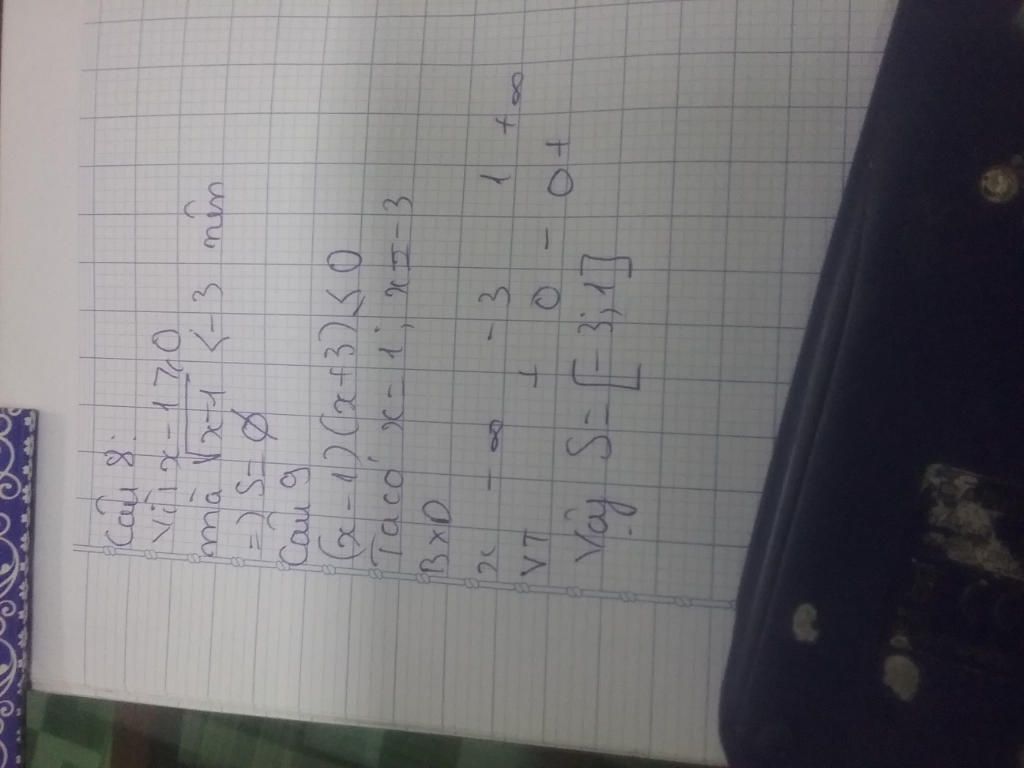 Câu 8:
Vì x-1 ≥ 0
mà √x-1 < -3 nên
=> S = ∅
Câu 9
(x-1)(x+3) ≤ 0
Ta có x = 1; x = -3
BXD
x -∞ -3 1 +∞
VT + 0 - 0 +
Vậy S = [-3; 1]